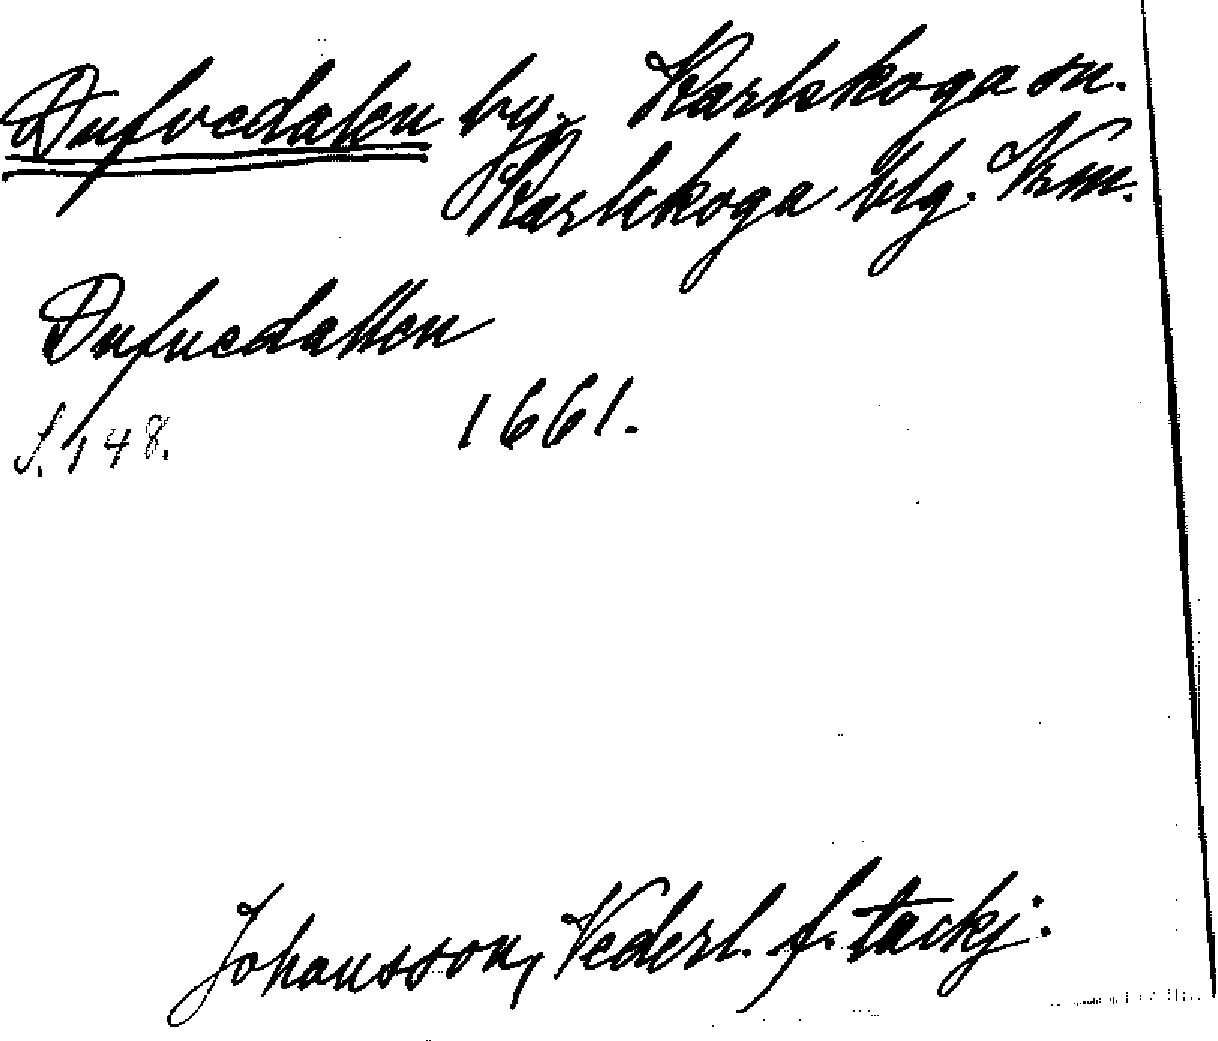 Dufvedalen by. Karlskoga sn.
Karlskoga blg. Vrm.
Dufuedallen
S. 148. 1661.
Johansson, Vederl. f. tackj: